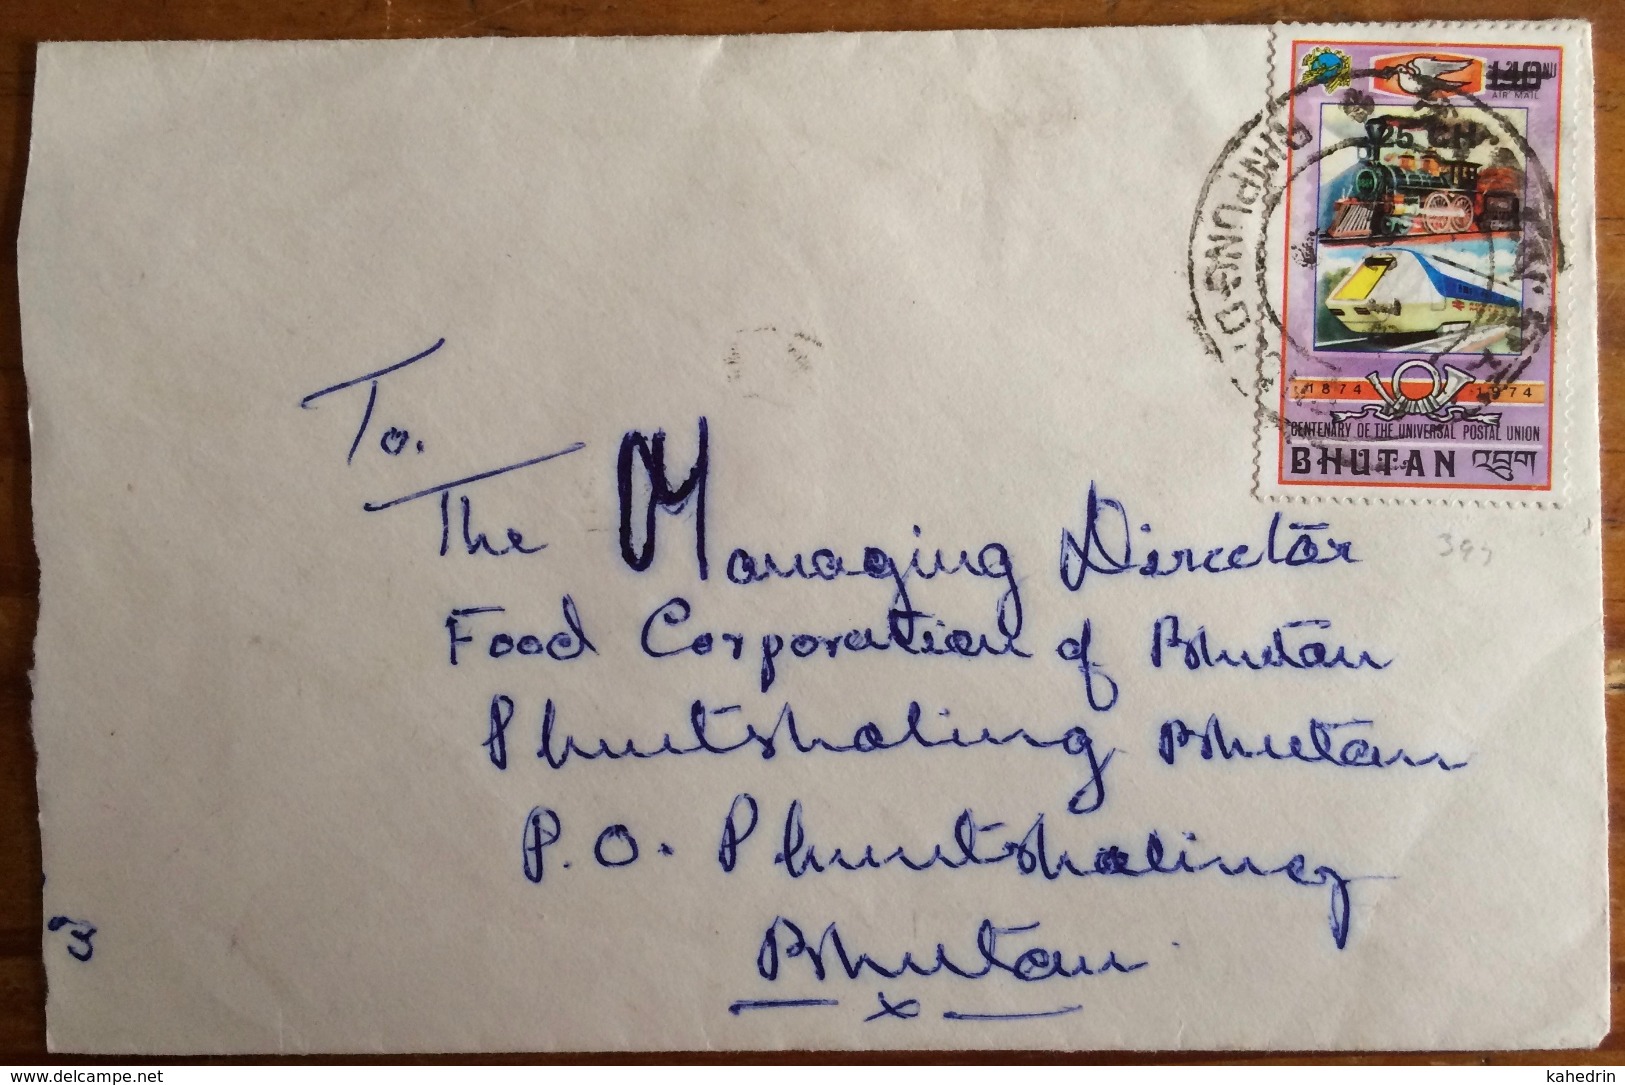 140
AIR MAIL
25 CH
RINPUNG DZ
1874 1974
CENTENARY OF THE UNIVERSAL POSTAL UNION
BHUTAN འབྲུག
To.
The Managing Director
Food Corporation of Bhutan
Phuntsholing Bhutan
P.O. Phuntsholing
Bhutan
x
3
www.delcampe.net
kahedrin